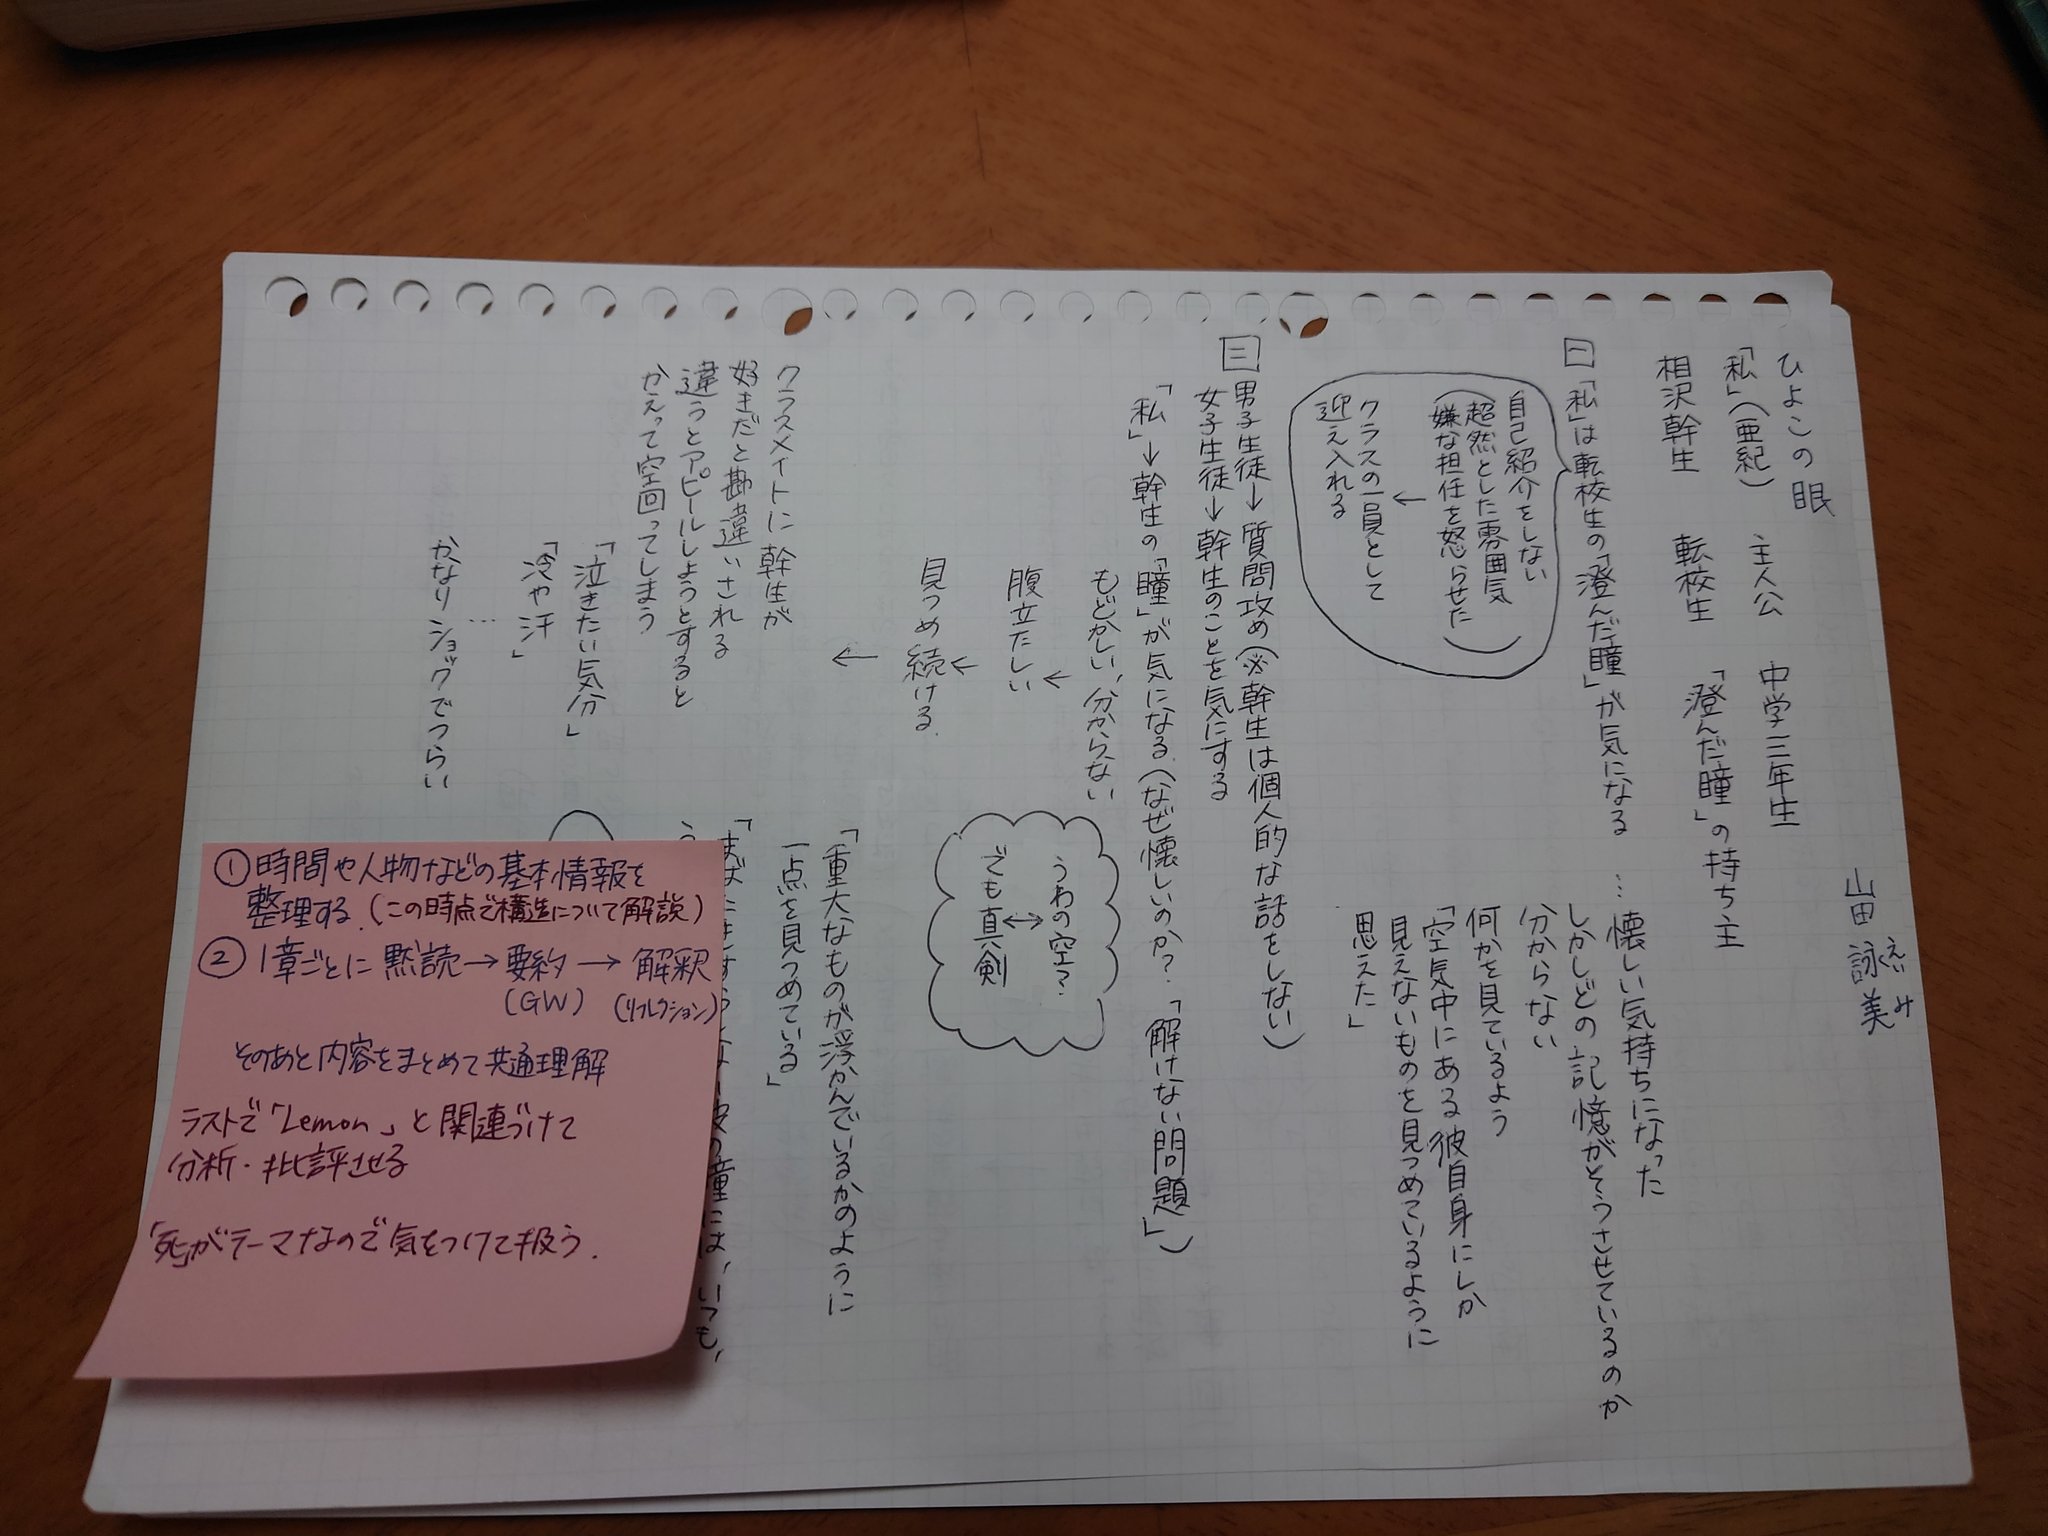 ひよこの眼
山田詠美
えいみ
「私」(亜紀) 主人公 中学三年生
相沢幹生 転校生 「澄んだ瞳」の持ち主
一 「私」は転校生の「澄んだ瞳」が気になる…懐しい気持ちになった
しかしどの記憶がそうさせているのか
分からない
何かを見ているよう
「空気中にある彼自身にしか
見えないものを見つめているように
思えた」
自己紹介をしない
(超然とした雰囲気
嫌な担任を怒らせた)
↓
クラスの一員として
迎え入れる
二 男子生徒→質問攻め(※幹生は個人的な話をしない)
女子生徒→幹生のことを気にする
「私」→幹生の「瞳」が気になる(なぜ懐しいのか?「解けない問題」)
もどかしい,分からない
↓
腹立たしい
↓
見つめ続ける
↓
うわの空?
↔
でも真剣
「重大なものが浮かんでいるかのように
一点を見つめている」
クラスメイトに幹生が
好きだと勘違いされる
違うとアピールしようとすると
かえって空回ってしまう
「泣きたい気分」
「冷や汗」
…
かなりショックでつらい
瞳には,いつも,
①時間や人物などの基本情報を
整理する.(この時点で構造について解説)
②1章ごとに黙読→要約→解釈
(GW) (リフレクション)
そのあと内容をまとめて共通理解
ラストで「Lemon」と関連づけて
分析・批評させる
「死」がテーマなので気をつけて扱う.